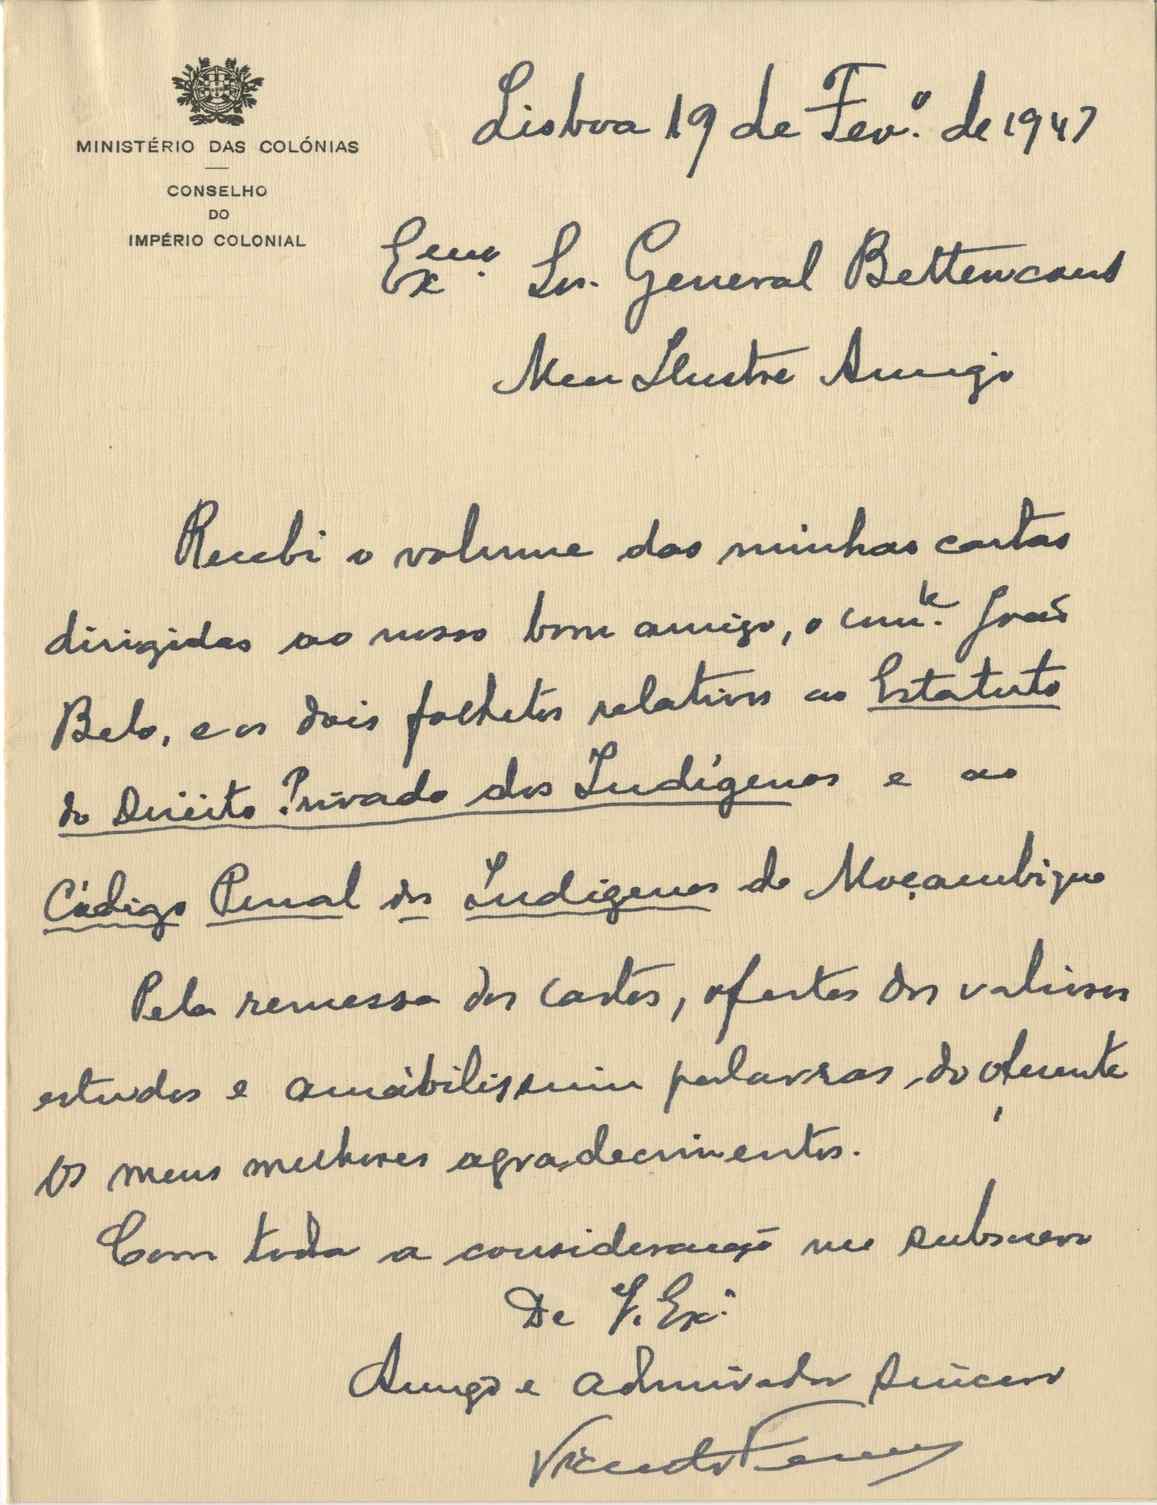 MINISTÉRIO DAS COLÓNIAS
CONSELHO
DO
IMPÉRIO COLONIAL
Lisboa 19 de Fev.º de 1947
Exmo. Sr. General Bettencourt
Meu Ilustre Amigo
Recebi o volume das minhas cartas
dirigidas ao nosso bom amigo, o João
Belo, e os dois folhetos relativos ao Estatuto
do Direito Privado dos Indígenas e ao
Código Penal dos Indígenas de Moçambique
Pela remessa das cartas, ofertas dos valiosos
estudos e amabilissimas palavras do oferente
os meus melhores agradecimentos.
Com toda a consideração me subscrevo
De V. Exª.
Amigo e admirador sincero
Vicente Ferreira